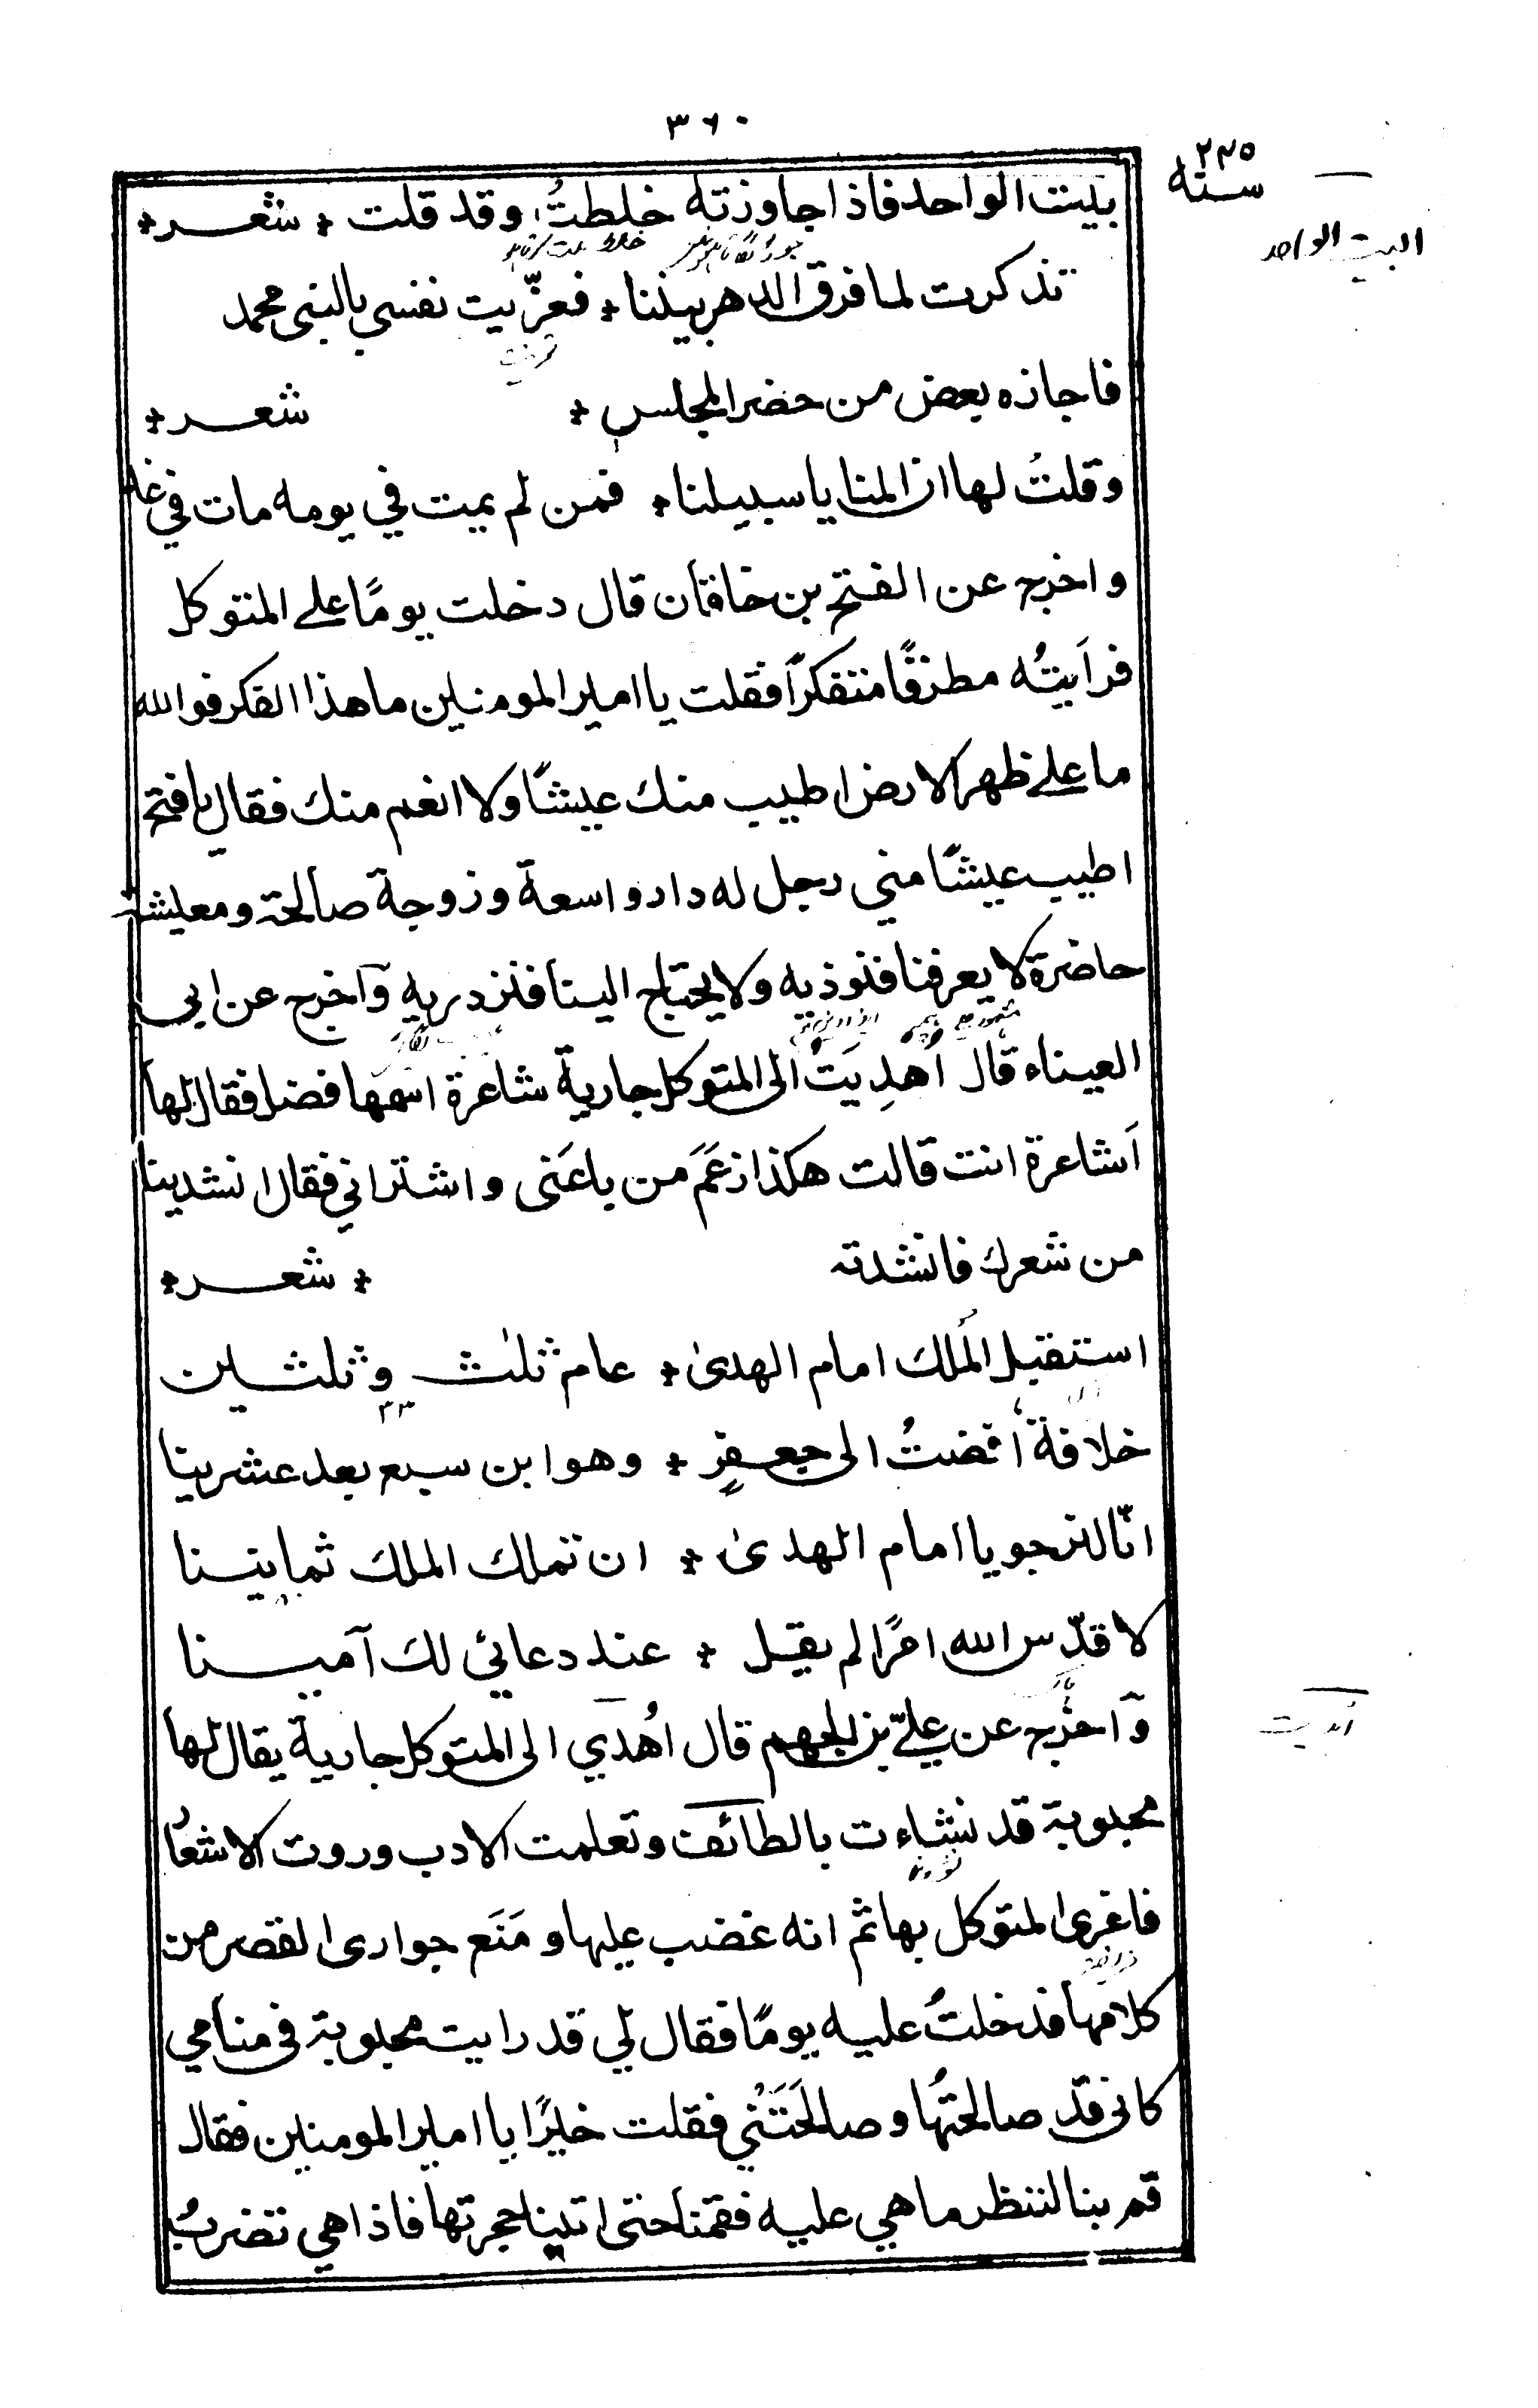 ٣٦٠
سنة ٢٣٥
بيت الواحد فاذا جاوزته خلطتُ وقد قلت * شعر *
البيت الواحد
تذكرت لما فرق الدهر بيننا * فعزّيت نفسي بالنبي محمد
فاجازه بعض من حضر المجلس * شعر *
وقلتُ لها ان المنايا سبيلنا * فمن لم يمت في يومه مات في غد
واخرج عن الفتح بن خاقان قال دخلت يومًا على المتوكل
فرأيتُه مطرقًا متفكرًا فقلت يا امير المومنين ما هذا الفكر فوالله
ما على ظهر الارض اطيب منك عيشًا ولا انعم منك فقال يا فتح
اطيب عيشًا مني رجل له دار واسعة وزوجة صالحة ومعيشة
حاضرة لا يعرفنا فنوذيه ولا يحتاج الينا فنزدريه وآخرج عن ابي
العيناء قال اُهدِيَتْ الى المتوكل جارية شاعرة اسمها فضل فقال لها
اَشاعرة انت قالت هكذا زعَمَ من باعَنى واشتراني فقال انشدينا
من شعرك فانشدته * شعر *
استقبل المُلك امام الهدىٰ * عام ثلٰث وثلثين
٣٣
خلافة افضتْ الى جعفرٍ * وهو ابن سبع بعد عشرينا
انّا لنرجو يا امام الهدىٰ * ان تملك الملك ثمانينا
لا قدّس الله امرًا لم يقل * عند دعائي لك آمينا
وآخرج عن عليّ بن الجهم قال اُهدي الى المتوكل جارية يقال لها
محبوبة قد نشاءت بالطائف وتعلمت الادب وروت الاشعا
فاغرى المتوكل بها ثم انه غضب عليها ومَنَع جوارى القصر من
كلامها فدخلتُ عليه يومًا فقال لي قد رايت محبوبة فى منامي
كانى قد صالحتُها وصالَحَتْنِي فقلت خيرًا يا امير المومنين فقال
قم بنا لننظر ما هي عليه فقمنا حتى اتينا حجرتها فاذا هي تضربُ